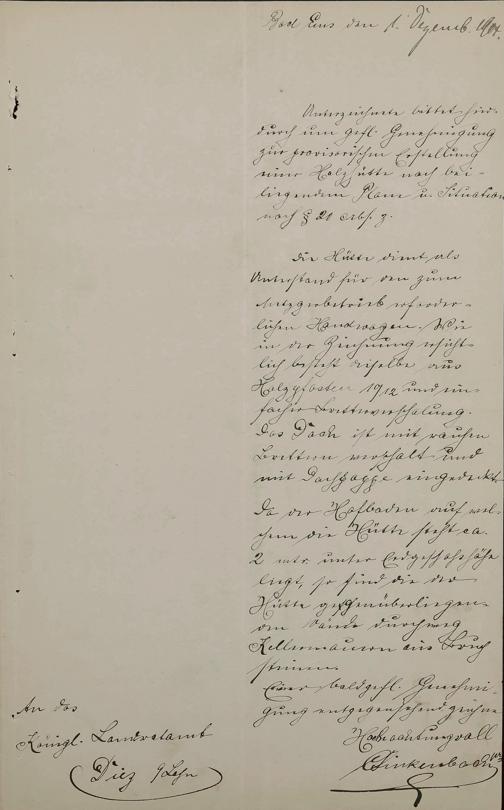 Bad Ems den 1. Dezemb. 1901.
Unterzeichnete bittet hier-
durch um gefl. Genehmigung
zur provisorischen Erstellung
einer Holzhütte nach bei-
liegendem Plane u. Situation
nach § 20 abs. 2.
Die Hütte dient als
Unterstand für den zum
Metzgerbetrieb erforder-
lichen Handwagen. Wie
in der Zeichnung ersicht-
lich besteht dieselbe aus
Holzpfosten 10/12 und ein-
facher Bretterverschalung.
Das Dach ist mit rauhen
Brettern verschalt und
mit Dachpappe eingedeckt.
Da der Hofboden auf wel-
chem die Hütte steht ca.
2 mtr. unter Erdgeschoshöhe
liegt, so sind die der
Hütte gegenüberliegen-
den Wände durchweg
Kellermauern aus Bruch
steinen.
Einer baldgefl. Genehmi-
gung entgegensehend zeichne
Hochachtungsvoll
An das
Königl. Landratamt
Diez a/Lahn